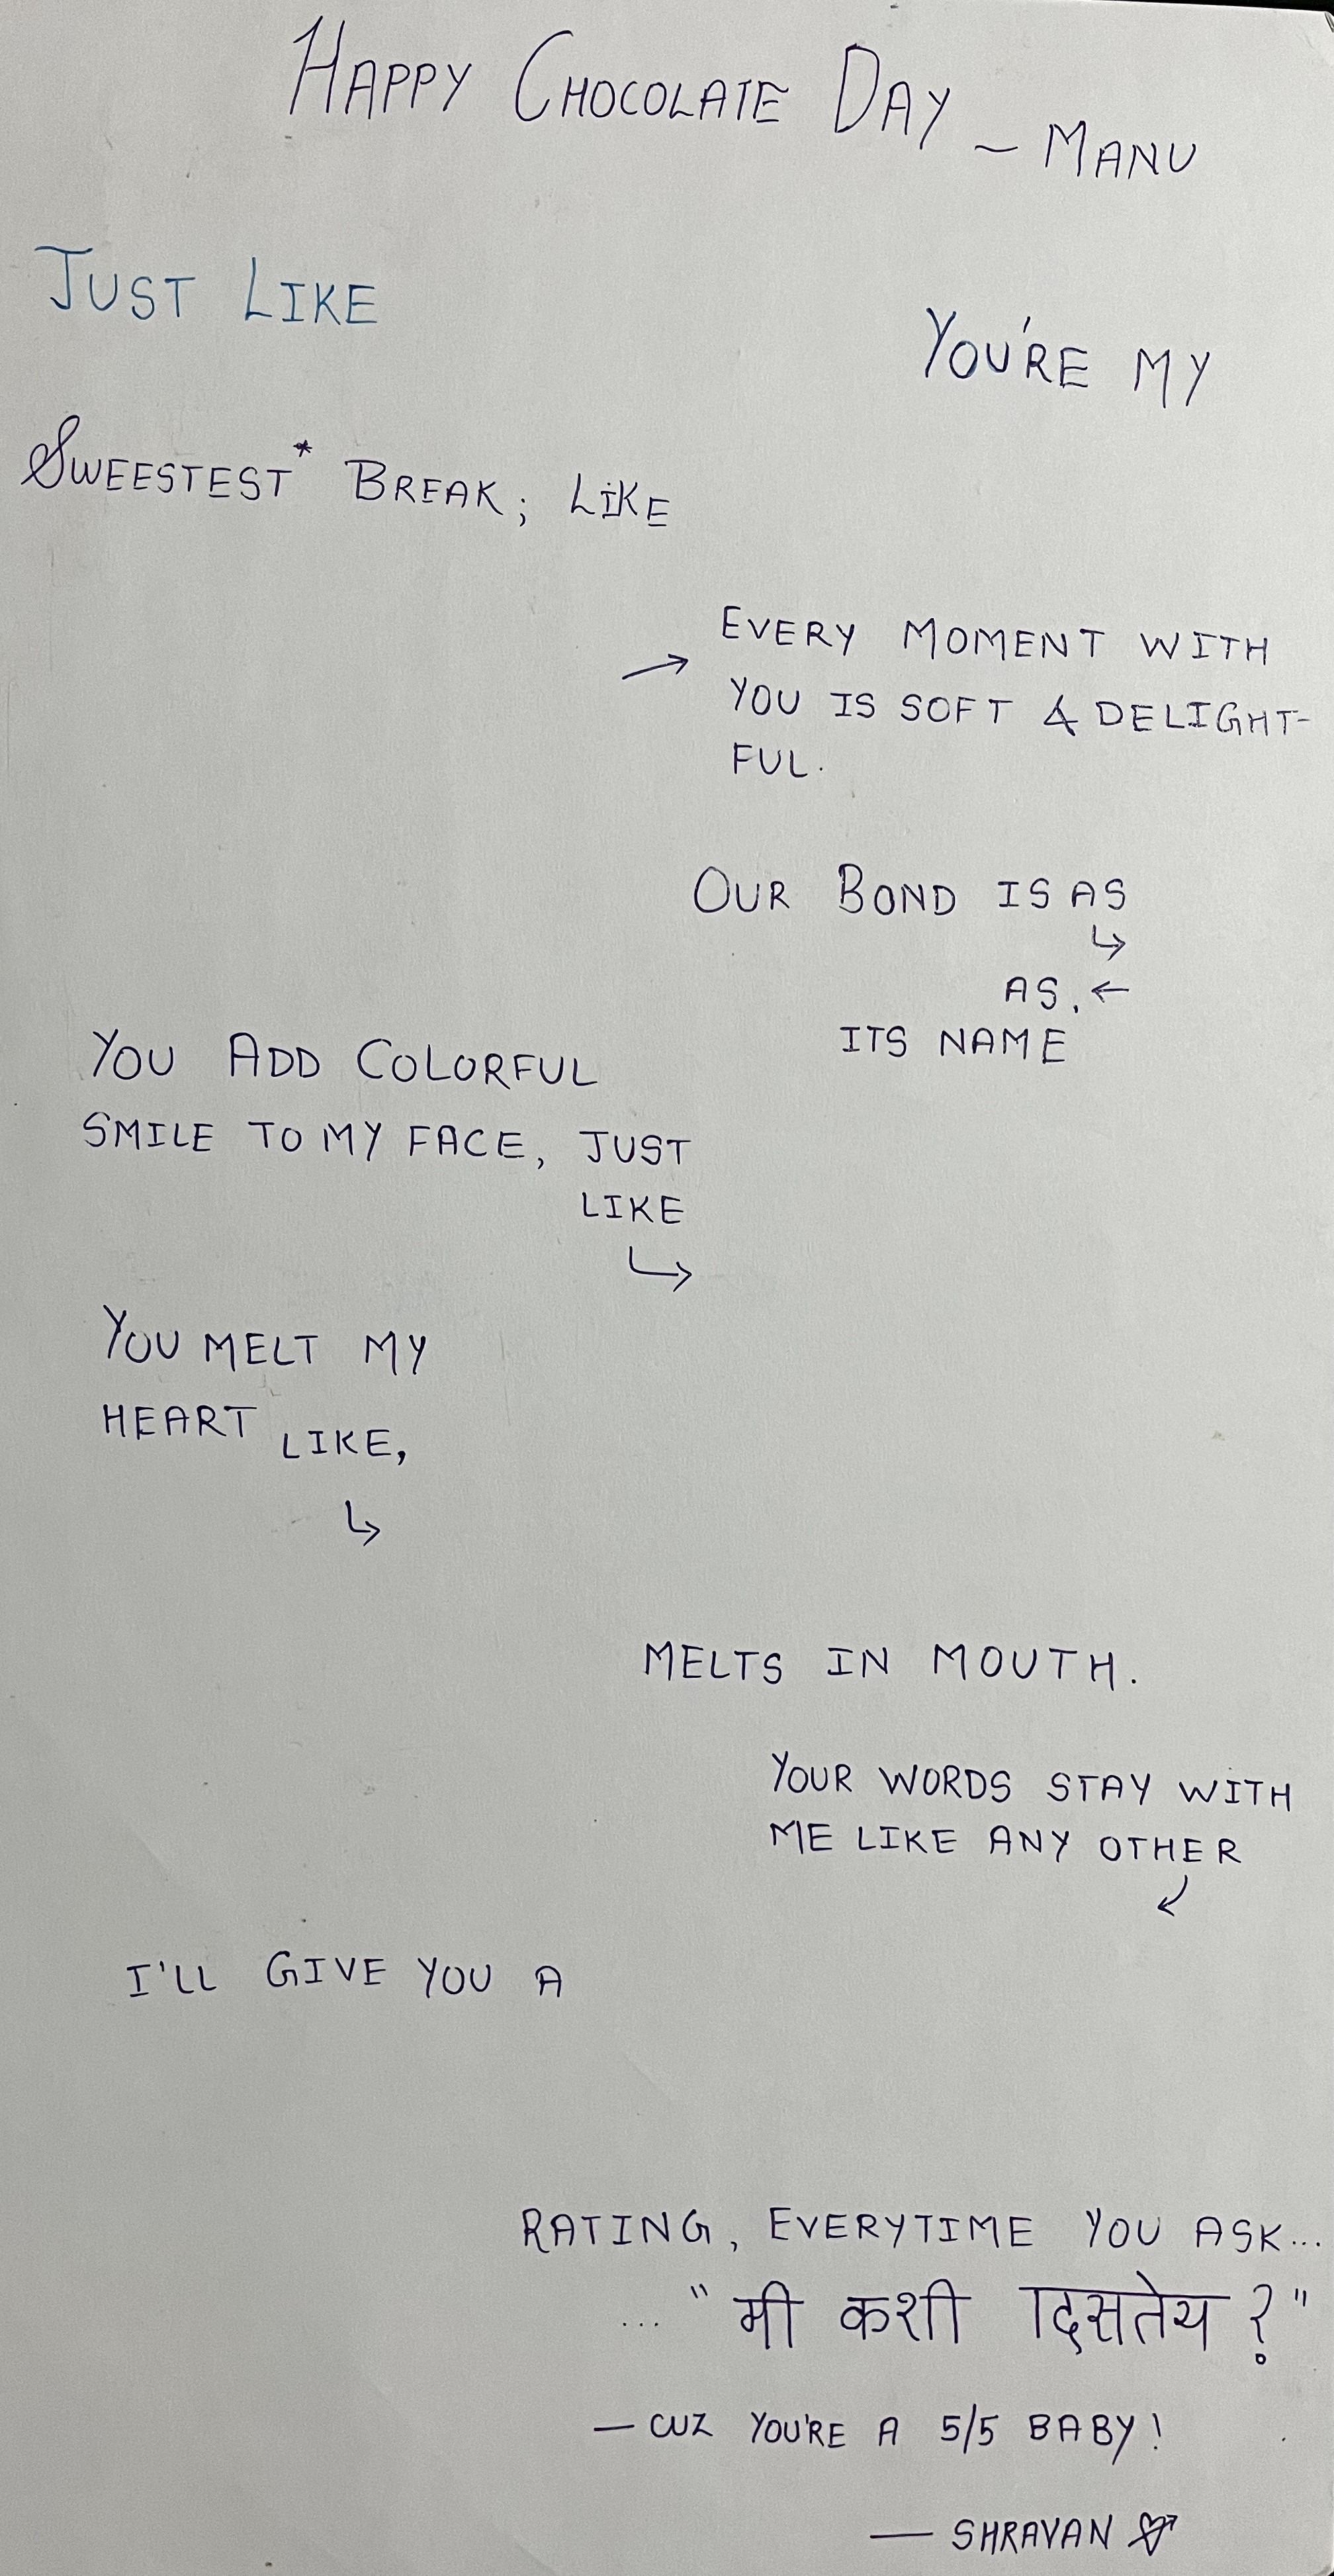 HAPPY CHOCOLATE DAY ~ MANU
JUST LIKE
YOU'RE MY
SWEESTEST* BREAK; LIKE
→ EVERY MOMENT WITH
YOU IS SOFT & DELIGHT-
FUL.
OUR BOND IS AS
↳
AS, ←
ITS NAME
YOU ADD COLORFUL
SMILE TO MY FACE, JUST
LIKE
↳
YOU MELT MY
HEART LIKE,
↳
MELTS IN MOUTH.
YOUR WORDS STAY WITH
ME LIKE ANY OTHER
↙
I'LL GIVE YOU A
RATING, EVERYTIME YOU ASK...
... "मी कशी दिसतेय ?"
— CUZ YOU'RE A 5/5 BABY!
— SHRAVAN